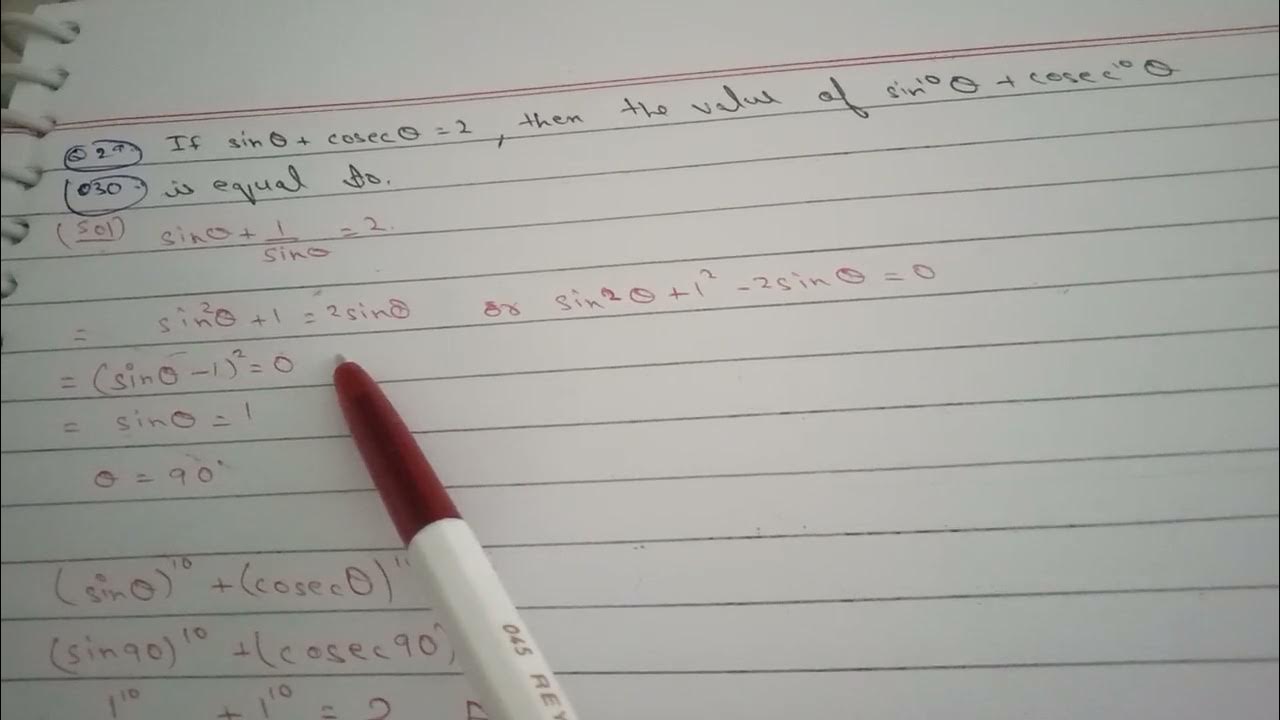 Q 29. If sinθ + cosecθ = 2, then the value of sin¹⁰θ + cosec¹⁰θ
(030) is equal to.
(Sol) sinθ + 1/sinθ = 2.
= sin²θ + 1 = 2sinθ or sin²θ + 1² - 2sinθ = 0
= (sinθ - 1)² = 0
= sinθ = 1
θ = 90°
(sinθ)¹⁰ + (cosecθ)
(sin90)¹⁰ + (cosec90°)
1¹⁰ + 1¹⁰ = 2
045 REY